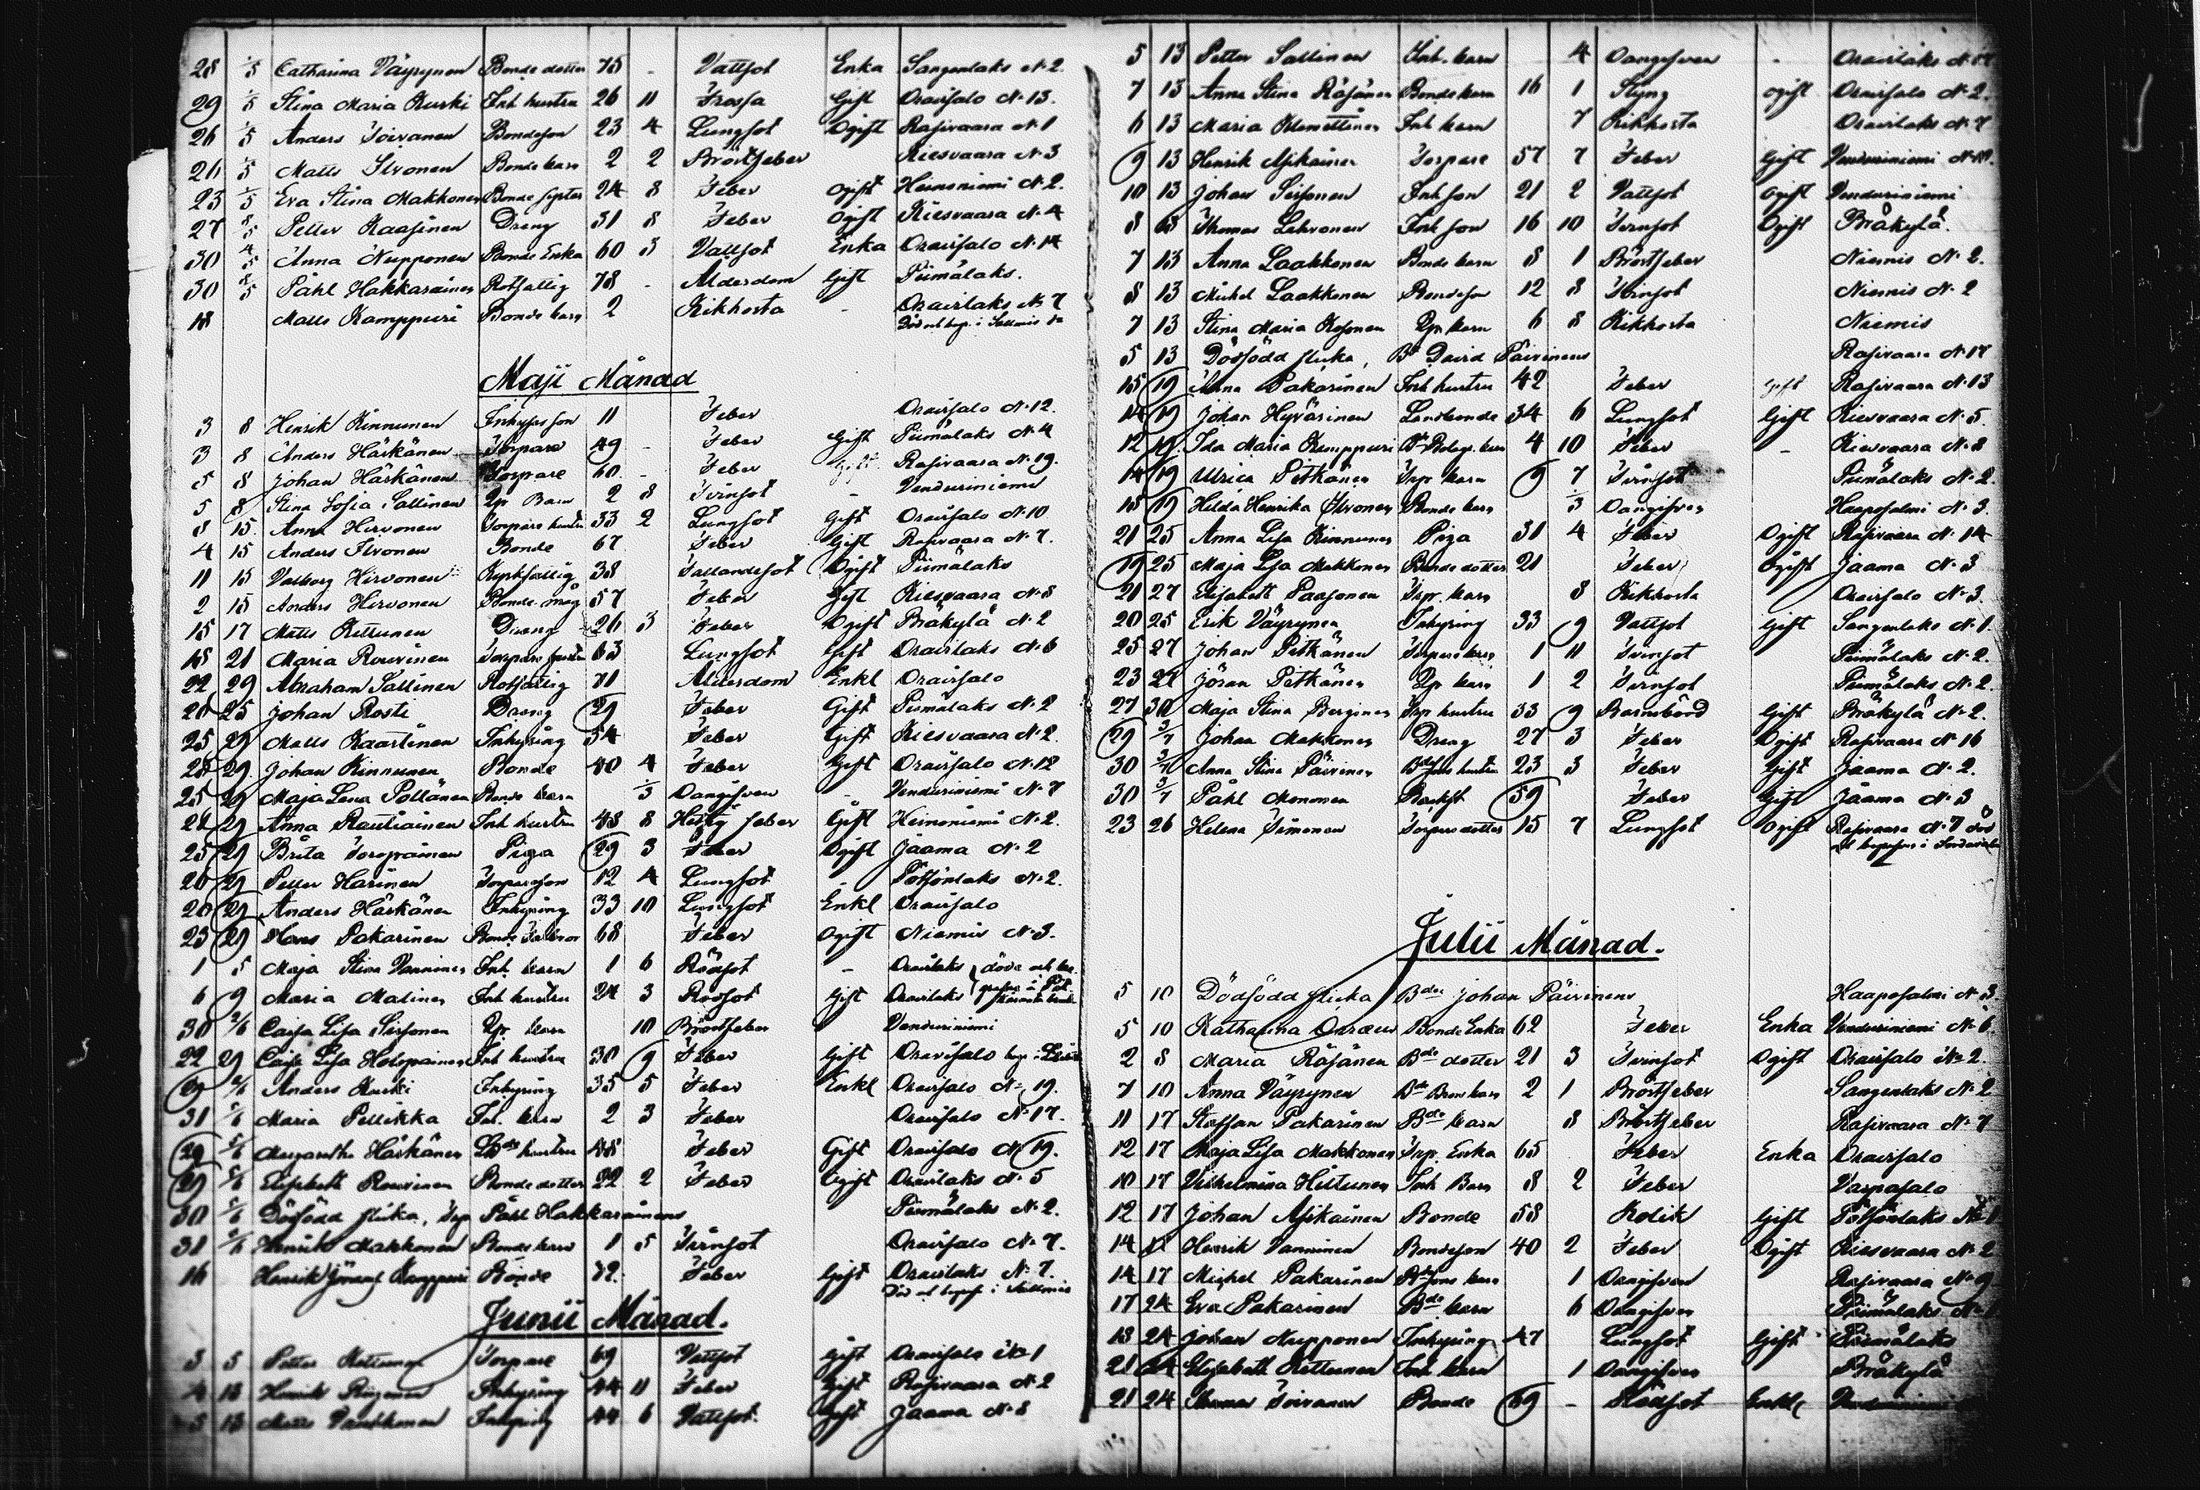 28 1/5 Catharina Väyrynen Bonde dotter 75 - Vattsot Enka Sangenlaks N:2
29 1/5 Stina Maria Kurki Inh hustru 26 11 Frossa Gift Oravisalo N:13.
26 1/5 Anders Toivanen Bondeson 23 4 Lungsot Ogift Rasivaara N:1
26 1/5 Matts Ikonen Bonde barn 2 2 Bröstfeber Riesvaara N:3
23 1/5 Eva Stina Makkonen Bonde 24 8 Feber Ogift Heinoniemi N:2.
27 8/5 Petter Kaasinen Dreng 31 8 Feber Ogift Riesvaara N:4
30 4/5 Anna Nupponen Bonde Enka 60 3 Vattsot Enka Oravisalo N:14
30 Påhl Hakkarainen Rotfattig 78 - Ålderdom Gift Piimälaks.
18 Matts Kamppuri Bonde barn 2 Kikhosta - Oravilaks N:7
Död och begr. i
Maji Månad
3 8 Henrik Kinnunen 11 Feber Oravisalo N:12.
3 8 Anders Härkänen Torpare 49 - Feber Gift Piimälaks N:4
5 8 Johan Härkänen Torpare 60 - Feber Gift Rasivaara N:19.
5 8 Stina Sofia Sallinen Barn 2 8 Tvinsot - Venduriniemi
8 15 Anna Hirvonen Torpare hustru 33 2 Lungsot Gift Oravisalo N:10
4 15 Anders Ikonen Bonde 67 Feber Gift Rasivaara N:7.
11 15 Valborg Hirvonen 38 Fallandesot Ogift Piimälaks
2 15 Anders Hirvonen Bonde måg 57 Feber Gift Riesvaara N:8
15 17 Matts Kettunen Dreng 26 3 Feber Ogift Bråkylä N:2
18 21 Maria Rouvinen Torpare hustru 63 Lungsot Gift Oravilaks N:6
22 29 Abraham Sallinen Rotfattig 71 Ålderdom Enkl Oravisalo
20 25 Johan Rosti Dreng 29 Feber Gift Piimälaks N:2
25 29 Matts Kaartinen Inhysing 54 Feber Gift Riesvaara N:2.
28 29 Johan Kinnunen Bonde 40 4 Feber Gift Oravisalo N:12
25 29 Maja Lena Pöllänen Bonde barn 1/3 Oangifven - Venduriniemi N:7
24 29 Anna Rautiainen Inh hustru 48 8 Hetsig feber Gift Heinoniemi N:2.
25 29 Brita Toropainen Piga 29 3 Feber Ogift Jaama N:2
20 29 Petter Harinen Torpareson 12 4 Lungsot - Pötsönlaks N:2.
20 29 Anders Härkänen Inhysing 33 10 Lungsot Enkl Oravisalo
23 29 Hans Pakarinen Bonde 68 Feber Ogift Niemis N:3.
1 5 Maja Stina Vanninen Inh. barn 1 6 Rödsot - Oravilaks döde och be-
6 9 Maria Malinen Inh hustru 24 3 Rödsot Gift Oravilaks
30 2/6 Caisa Lisa Sissonen barn 10 Bröstfeber Venduriniemi
22 29 Caisa Lisa Holopainen Inh hustru 30 9 Feber Gift Oravisalo
29 2/6 Anders Kurki Inhysing 35 5 Feber Enkl Oravisalo N: 19.
31 Maria Pellikka Inh. barn 2 3 Feber Oravisalo N:17.
29 5/6 Margaretha Härkänen hustru 48 Feber Gift Oravisalo N:19.
29 5/6 Elisabeth Rouvinen Bonde dotter 22 2 Feber Ogift Oravilaks N:5
30 5/6 Dödfödd flicka, Torp Påhl Hakkarainens Piimälaks N:2.
31 5/6 Henrik Makkonen Bonde barn 1 5 Tvinsot Oravisalo N:7.
16 Henrik Kamppuri Bonde 72 Feber Gift Oravilaks N:7.
Död och begr. i
Junii Månad.
3 3 Petter Kettunen Torpare 69 Vattsot Gift Oravisalo N:1
Henrik Inhysing 44 11 Feber Gift Rasivaara N:2
Matts Inhysing 44 6 Vattsot Gift Jaama N:8
5 13 Petter Sallinen Inh. barn 4 Oangifven - Oravilaks
7 13 Anna Stina Räsänen Bonde barn 16 1 Styng Ogift Oravisalo N:2.
6 13 Maria Klemettinen Inh barn 7 Kikhosta Oravilaks N:7
9 13 Henrik Asikainen Torpare 57 7 Feber Gift Venduriniemi
10 13 Johan Sissonen Inh son 21 2 Vattsot Ogift Venduriniemi
8 13 Thomas Lehvonen Inh son 16 10 Tvinsot Ogift Bråkylä.
7 13 Anna Laakkonen Bonde barn 8 1 Bröstfeber Niemis N:2.
8 13 Michel Laakkonen Bondeson 12 8 Tvinsot Niemis N:2
7 13 Stina Maria Kosonen barn 6 8 Kikhosta Niemis
5 13 Dödfödd flicka, David Päivinens Rasivaara N:17
15 19 Anna Pakarinen Inh hustru 42 Feber Gift Rasivaara N:13
14 19 Johan Hyvärinen Landbonde 34 6 Lungsot Gift Riesvaara N:5.
12 19 Ida Maria Kamppuri 4 10 Feber - Riesvaara N:8
14 19 Ulrica Pitkänen Torp barn 9 7 Tvinsot Piimälaks N:2.
15 19 Hilda Henrika Ikonen Bonde barn 1/3 Oangifven Haaposalmi N:3.
21 25 Anna Lisa Kinnunen Piga 31 4 Feber Ogift Rasivaara N:14
19 25 Maja Lisa Makkonen Bonde dotter 21 Feber Ogift Jaama N:3
21 27 Elisabeth Paasonen Torp. barn 8 Kikhosta Oravisalo N:3.
20 25 Erik Väyrynen Inhysing 33 9 Vattsot Gift Sangenlaks N:1.
25 27 Johan Pitkänen Torpare barn 1 11 Tvinsot Piimälaks N:2.
23 27 Jöran Pitkänen barn 1 2 Tvinsot Piimälaks N:2.
27 30 Maja Stina Berginen Torp hustru 33 9 Barnsbörd Gift Bråkylä N:2.
29 3/7 Johan Makkonen Dreng 27 3 Feber Ogift Rasivaara N:16
30 Anna Stina Päivinen hustru 23 3 Feber Gift Jaama N:2.
30 3/7 Påhl Mononen 59 Feber Gift Jaama N:3
23 26 Helena Simonen Torpare dotter 15 7 Lungsot Ogift Rasivaara N:7 död
och begrafven i
Julii Månad.
5 10 Dödfödd flicka Bde Johan Päivinens Haaposalmi N:3
5 10 Katharina Bonde Enka 62 Feber Enka Venduriniemi N:6
2 8 Maria Räsänen Bde dotter 21 3 Tvinsot Ogift Oravisalo N:2.
7 10 Anna Väyrynen barn 2 1 Bröstfeber Sangenlaks N:2
11 17 Staffan Pakarinen Bde barn 8 Bröstfeber Rasivaara N:7
12 17 Maja Lisa Makkonen Torp. Enka 65 Feber Enka Oravisalo
10 17 Vilhelmina Hiltunen Inh Barn 8 2 Feber Varpasalo
12 17 Johan Asikainen Bonde 58 Kolik Gift Pötsönlaks N:1
14 17 Henrik Vanninen Bondeson 40 2 Feber Ogift Riesvaara N:2
14 17 Michel Pakarinen barn 1 Oangifven Rasivaara N:9
17 24 Eva Pakarinen Bde barn 6 Oangifven Piimälaks
13 24 Johan Nupponen Inhysing 47 Lungsot Gift Piimälaks
21 24 Elisabeth Kettunen Inh barn 1 Oangifven Bråkylä
21 24 Thomas Toivanen Bonde 69 - Rödsot Enkl